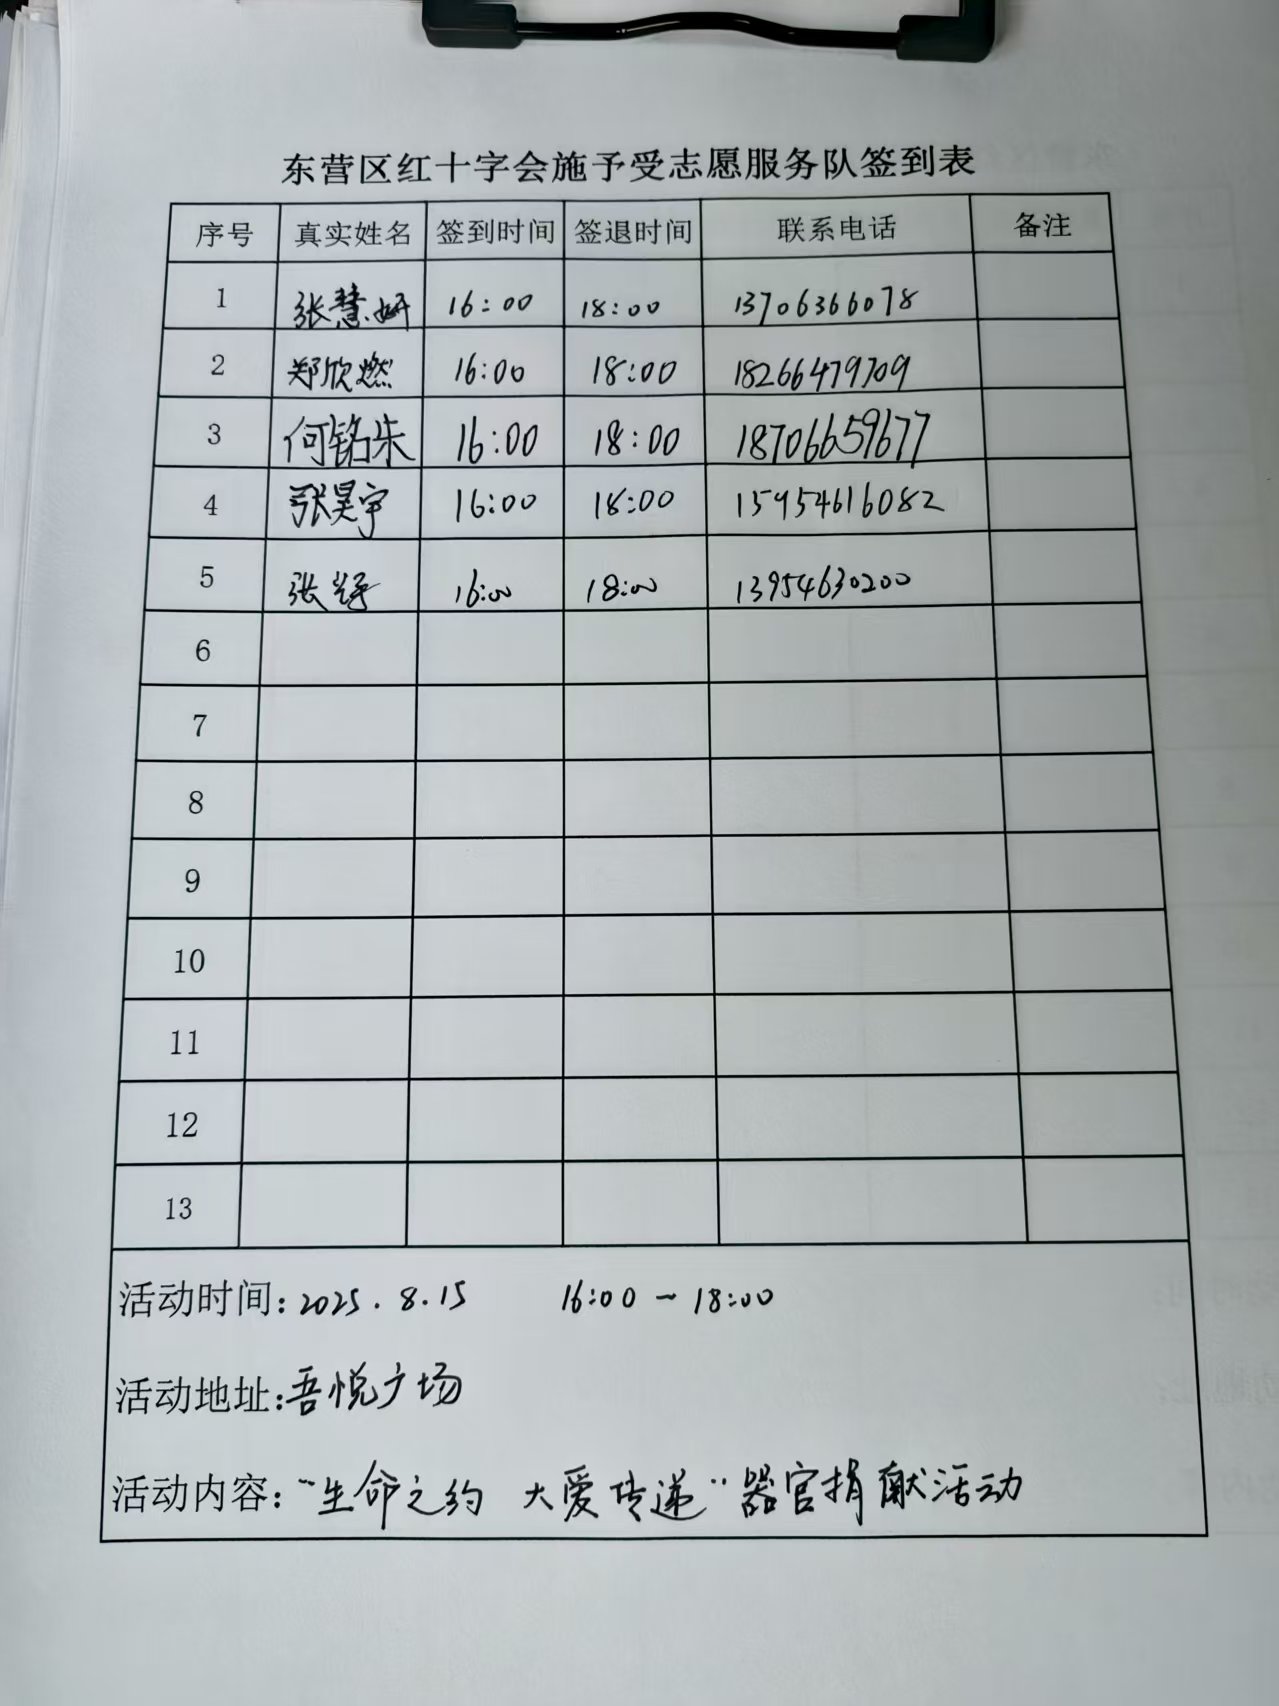 东营区红十字会施予受志愿服务队签到表
序号 真实姓名 签到时间 签退时间 联系电话 备注
1 张慧妍 16:00 18:00 13706366078
2 郑欣燃 16:00 18:00 18266479709
3 何铭朱 16:00 18:00 18706659677
4 张昊宇 16:00 18:00 15954616082
5 张 16:00 18:00 13954630200
6
7
8
9
10
11
12
13
活动时间:2025.8.15 16:00-18:00
活动地址:吾悦广场
活动内容:“生命之约 大爱传递”器官捐献活动